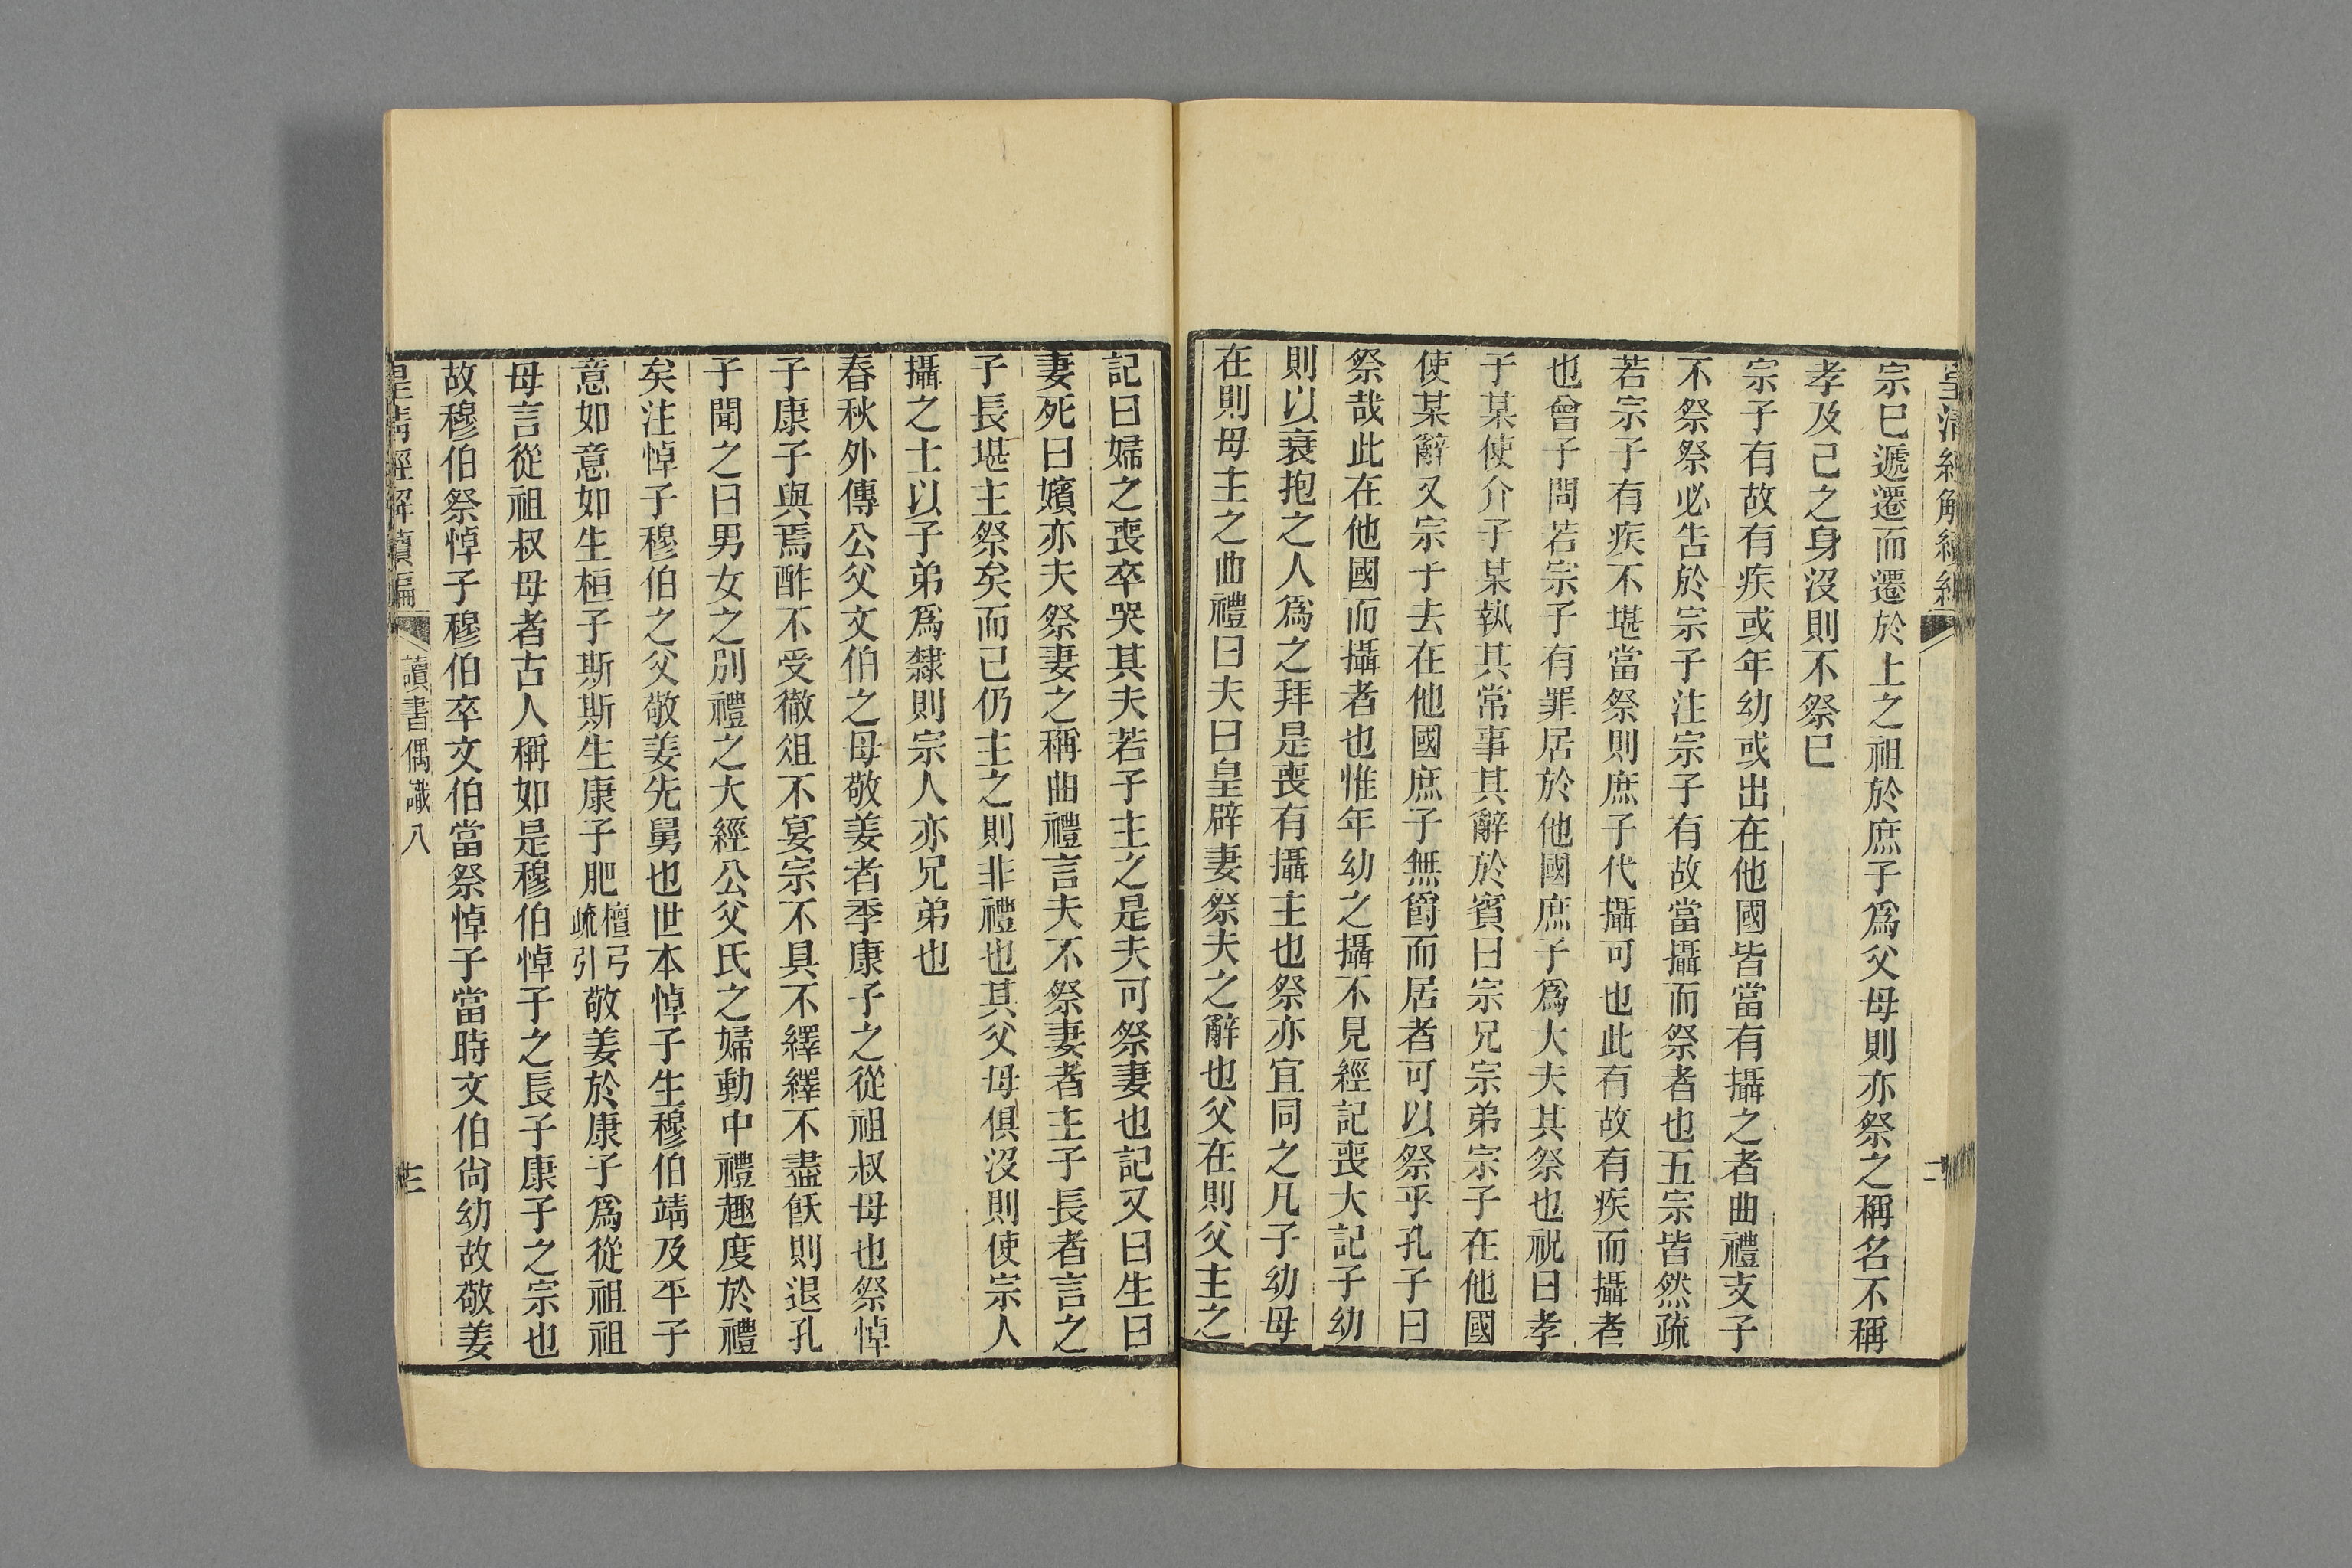 宗已遞遷而遷於上之祖於庶子爲父母則亦祭之稱名不稱
孝及己之身沒則不祭巳
宗子有故有疾或年幼或出在他國皆當有攝之者曲禮支子
不祭祭必告於宗子注宗子有故當攝而祭者也五宗皆然疏
若宗子有疾不堪當祭則庶子代攝可也此有故有疾而攝者
也曾子問若宗子有罪居於他國庶子爲大夫其祭也祝曰孝
子某使介子某執其常事其辭於賓曰宗兄宗弟宗子在他國
使某辭又宗子去在他國庶子無爵而居者可以祭乎孔子曰
祭哉此在他國而攝者也惟年幼之攝不見經記喪大記子幼
則以衰抱之人爲之拜是喪有攝主也祭亦宜同之凡子幼母
在則母主之曲禮曰夫曰皇辟妻祭夫之辭也父在則父主之
記曰婦之喪卒哭其夫若子主之是夫可祭妻也記又曰生曰
妻死曰嬪亦夫祭妻之稱曲禮言夫不祭妻者主子長者言之
子長堪主祭矣而己仍主之則非禮也其父母俱沒則使宗人
攝之士以子弟爲隸則宗人亦兄弟也
春秋外傳公父文伯之母敬姜者季康子之從祖叔母也祭悼
子康子與焉酢不受徹俎不宴宗不具不繹繹不盡飫則退孔
子聞之曰男女之別禮之大經公父氏之婦動中禮趣度於禮
矣注悼子穆伯之父敬姜先舅也世本悼子生穆伯靖及平子
意如意如生桓子斯斯生康子肥檀弓疏引敬姜於康子爲從祖祖
母言從祖叔母者古人稱如是穆伯悼子之長子康子之宗也
故穆伯祭悼子穆伯卒文伯當祭悼子當時文伯尙幼故敬姜
皇淸經解續編 讀書偶識八